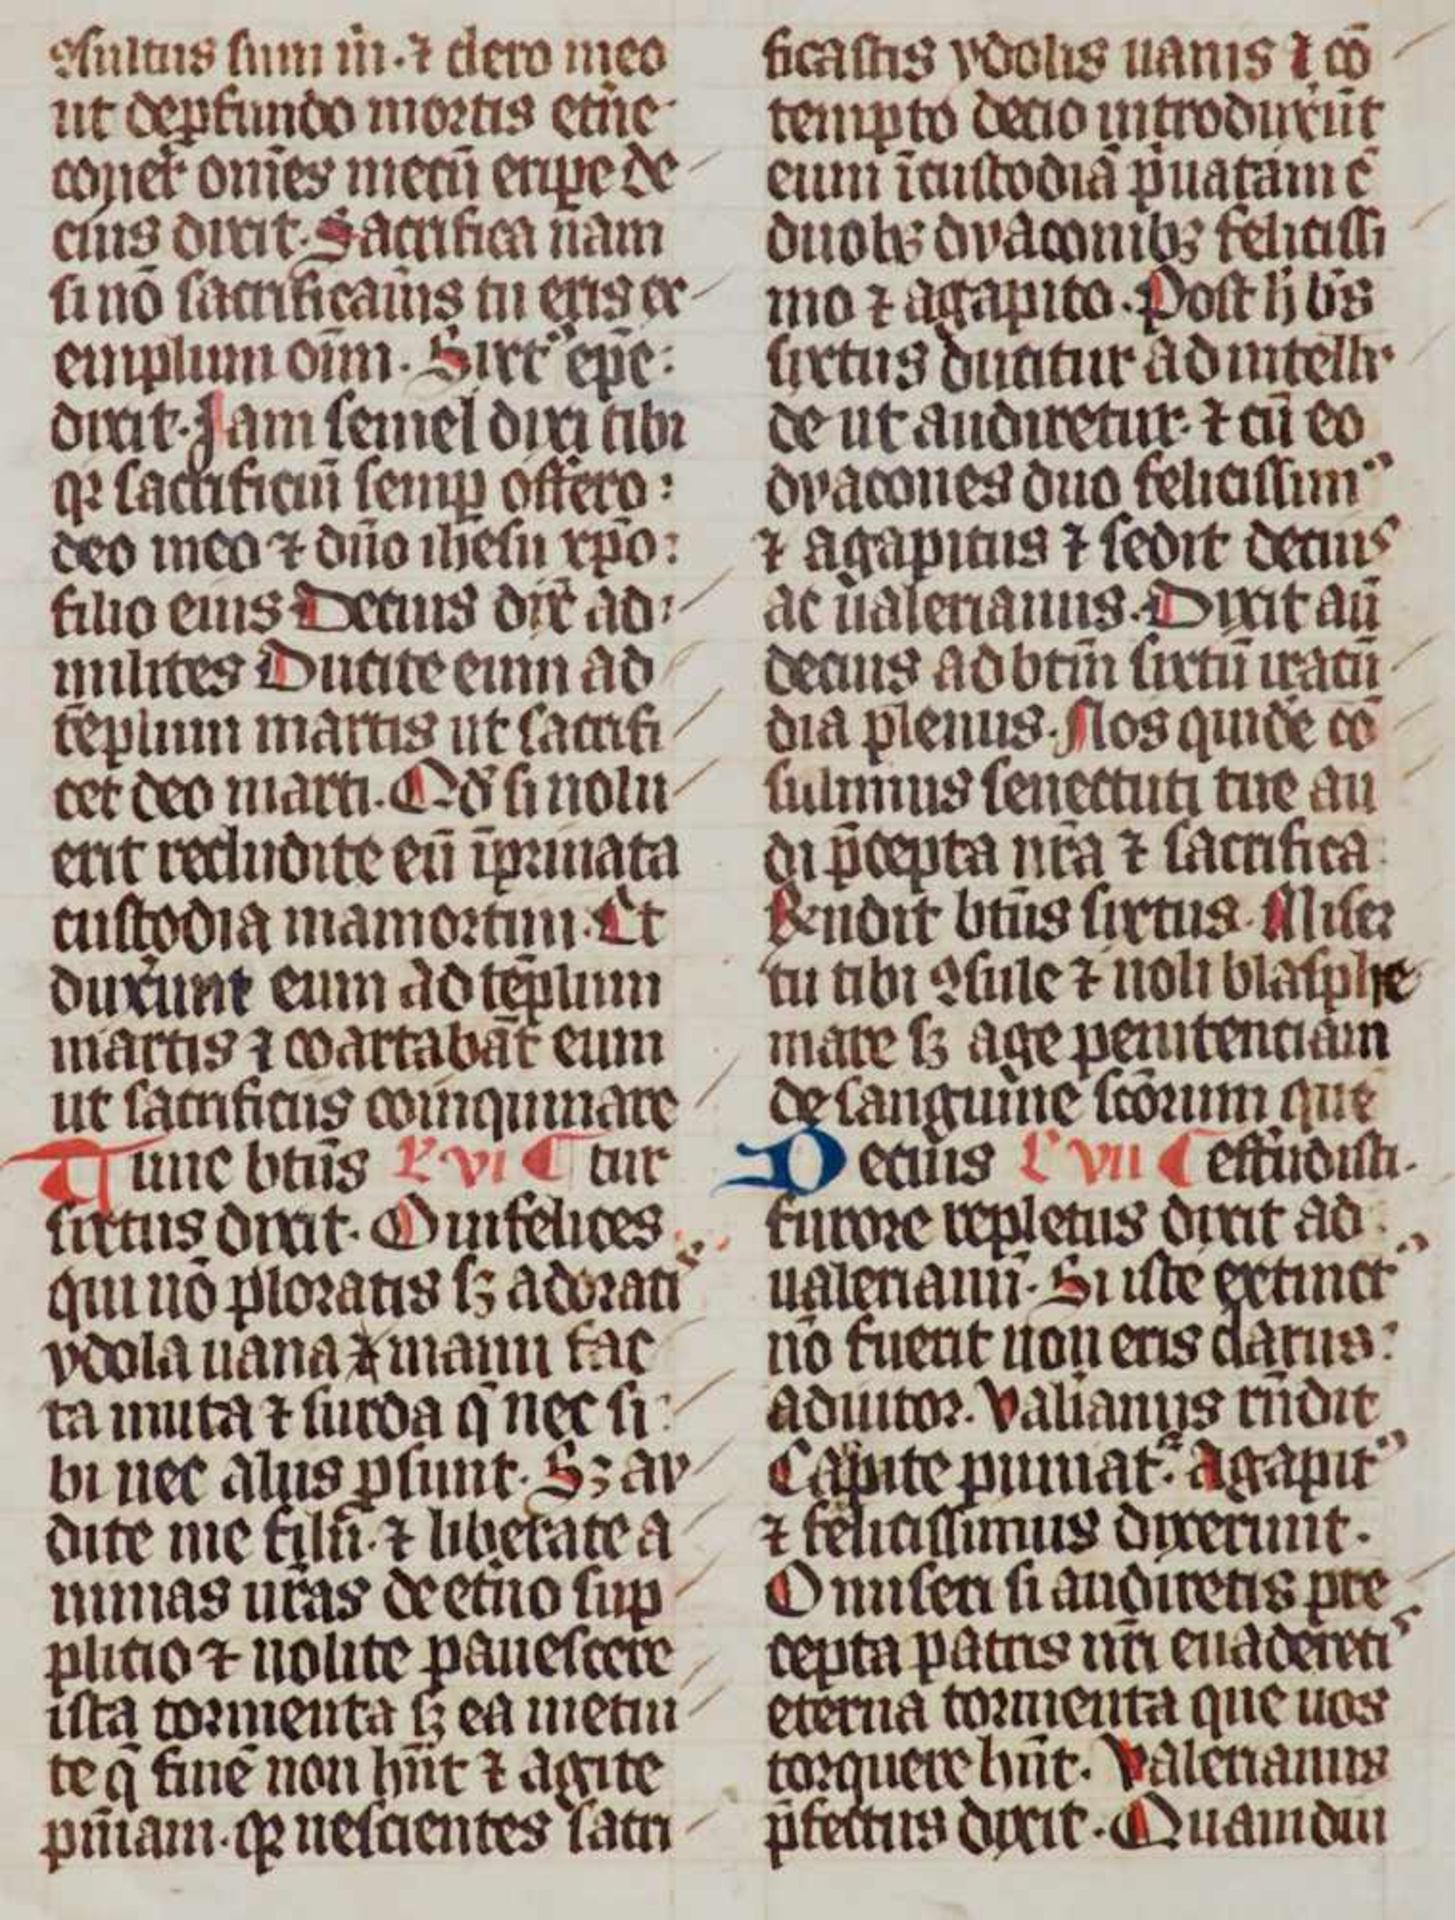 ꝯsultus sum m̄. ⁊ clero meo
ut de ꝓfundo mortis etn̄e
coner̄ om̄es mecū eripe de
cius dixit. Sacrifica nam
si nō sacrificaũis tu eris ex
emplum oīm. Sixtꝰ ep̄c
dixit. Jam semel dixi tibi
qꝛ sacrificiū semꝑ offero
deo meo ⁊ dn̄o ihesu xp̄o
filio eius Decius dix̄ ad
milites Ducite eum ad
tēplum martis ut sacrifi
cet deo marti. Qđ si nolu
erit recludite eū īpriuata
custodia mamortini. Et
duxunt eum ad tēplum
martis ⁊ coartabāt eum
ut sacrificiis coinquinare
Tunc btūs L vi tur
sixtus dixit. O infelices
qui nō ploratis sꝫ adoratiꝰ
ydola uana ⁊ manu fac
ta muta ⁊ surda q̄ nec si
bi nec aliis ꝓsunt. Sꝫ au
dite me filii. ⁊ liberate a
nimas ur̄as de et̄no sup
plicio ⁊ nolite pauescere
ista tormenta sꝫ ea metui
te q̄ finē non hn̄t ⁊ agite
pn̄iam. qꝛ nescientes sacri
ficastis ydolis uanis ⁊ cō
tempto decio introduxūt
eum ī custodiā p̄uatam c̄
duobꝫ dyaconibꝫ felicissi
mo ⁊ agapito. Post h̄ bs̄
sixtus ducitur ad intellu
de ut audiretur. ⁊ cū eo
dyacones duo felicissimꝰ
⁊ agapitus ⁊ sedit decius
ac ualerianus. Dixit aū
decius ad btm̄ sixtū iracū
dia plenus. Nos quidē cō
sulimus senectuti tue au
di p̄cepta nr̄a ⁊ sacrifica
Rn̄dit btūs sixtus. Miser
tu tibi ꝯsule ⁊ noli blasphe
mare sꝫ age penitenciam
de sanguine scōrum quē
Decius L vii effudisti.
furore repletus dixit ad
ualerianū. Si iste extinctꝰ
nō fuerit non eris clarus
adiutor. Valianus rn̄dit
Capite puniat᷑. Agapitꝰ
⁊ felicissimus dixerunt.
O miseri si audiretis pre
cepta patris nr̄i euaderetiꝰ
eterna tormenta que uos
torquere hn̄t. Valerianus
p̄fectus dixit. Quamdiu